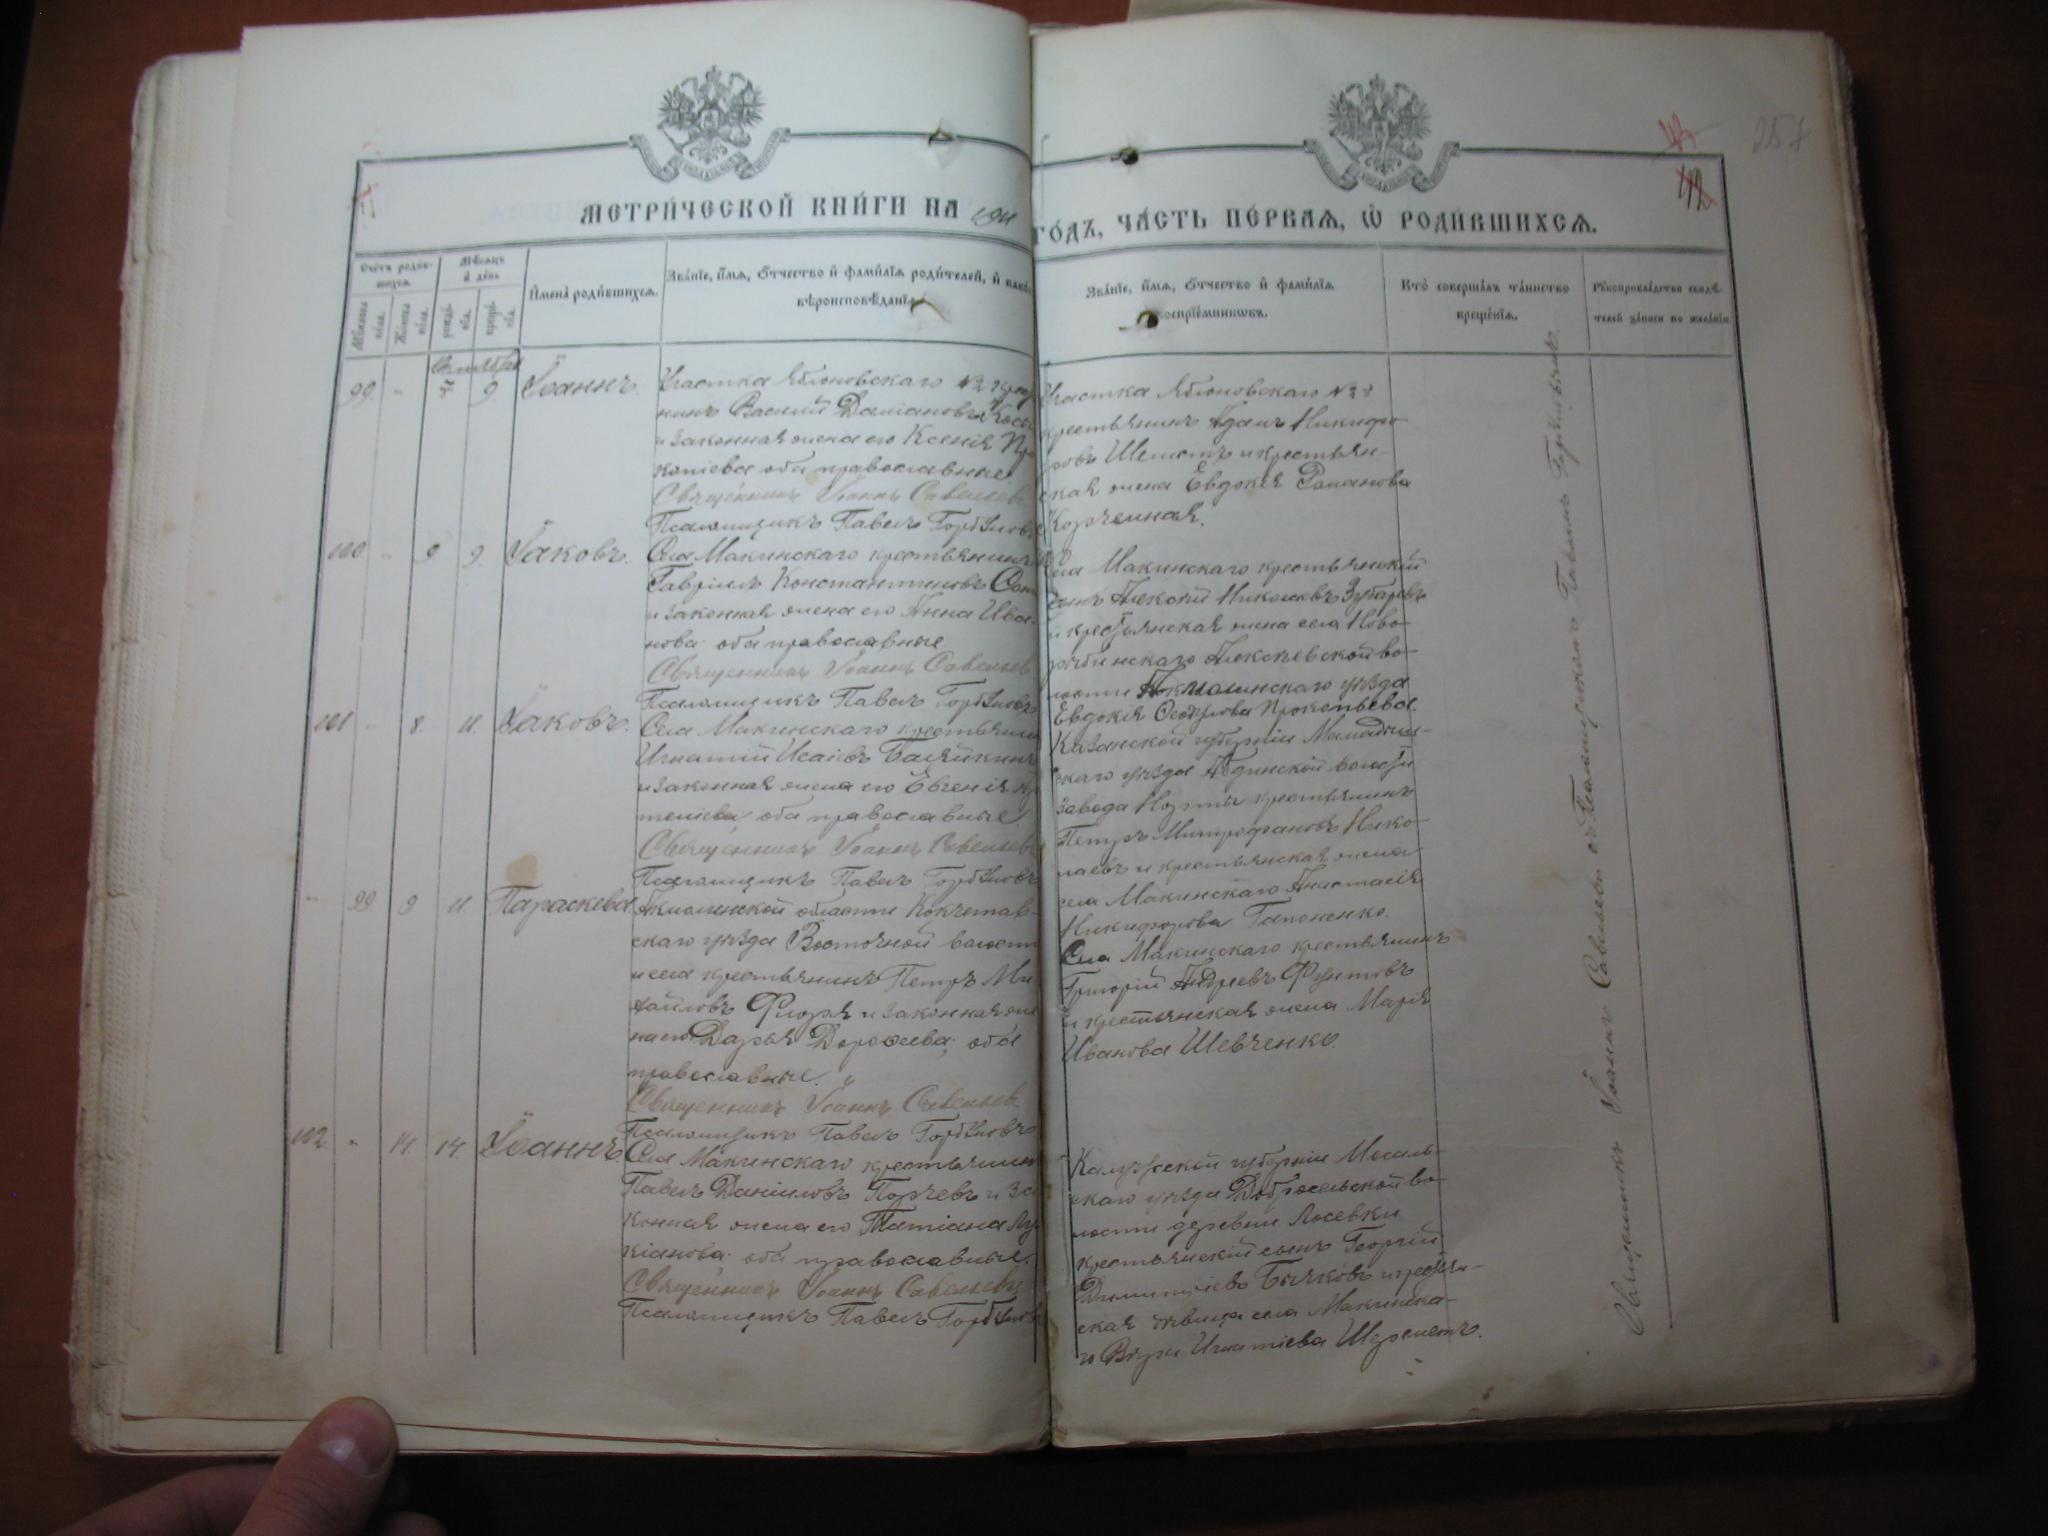 257
МЕТРИЧЕСКОЙ КНИГИ НА 1911
ГОДЪ, ЧАСТЬ ПЕРВАЯ, Ѡ РОДИВШИХСЯ.
Счетъ родив-
шихся.
Мѣсяцъ
и день
Имена родившихся.
Званіе, имя, отчество и фамилія родителей, и како-
вѣроисповѣданія
Мужеска
пола.
Женска
пола.
рожде-
нія.
креще-
нія.
Званіе, имя, отчество и фамилія
воспріемниковъ.
Кто совершалъ таинство
крещенія.
Рукоприкладство свидѣ-
телей записи по желанію
Октябрь
99. " 7 9 Іоаннъ.
Участка Яблоновскаго №2 крес
нинъ Василій Даміановъ
и законная жена его Ксенія Про
копіева оба православные
Священникъ Іоаннъ Савельевъ
Псаломщикъ Павелъ Горбуновъ
Участка Яблоновскаго №2
крестьянинъ Адамъ Никифо
ровъ Шеметъ и крестьян-
ская жена Евдокія Романова
Корчемная.
100 " 9 9. Іаковъ.
Села Макинскаго крестьянинъ
Гавріилъ Константиновъ
и законная жена его Анна Ива-
нова оба православные
Священникъ Іоаннъ Савельевъ
Псаломщикъ Павелъ Горбуновъ
Села Макинскаго крестьянскій
сынъ Алексій Николаевъ Зубаревъ
и крестьянская жена села Ново-
рыбинскаго Алексѣевской во-
лости Акмолинскаго уѣзда
Евдокія Ѳеодорова Прокопьева.
101 " 8. 11. Іаковъ.
Села Макинскаго крестьянин
Игнатій Исаіевъ Баляйкинъ
и законная жена его Евгенія
оба православные
Священникъ Іоаннъ Савельевъ
Псаломщикъ Павелъ Горбуновъ
Казанской губерніи Мамадыш-
скаго уѣзда волости
завода крестьянинъ
Петръ Митрофановъ Нико-
лаевъ и крестьянская жена
села Макинскаго Анастасія
Никифорова Гапоненко.
" 99 9 11. Параскева
Акмолинской области Кокчетав-
скаго уѣзда Восточной волости
и села крестьянинъ Петръ Ми
хайловъ Флоря и законная же
на его Дарья Дороѳеева оба
православные.
Священникъ Іоаннъ Савельевъ
Псаломщикъ Павелъ Горбуновъ
Села Макинскаго крестьянинъ
Григорій Андреевъ Фунтовъ
и крестьянская жена Марія
Иванова Шевченко.
102. " 14. 14. Іоаннъ.
Села Макинскаго крестьянин
Павелъ Даніиловъ Порчевъ и за
конная жена его Татіана Лу
кіанова оба православные.
Священникъ Іоаннъ Савельевъ
Псаломщикъ Павелъ Горбуновъ
Калужской губерніи Мосаль-
скаго уѣзда Добросельской во-
лости деревни Лосевки
крестьянскій сынъ Георгій
Димитріевъ Бычковъ и крестьян-
ская дѣвица села Макинска-
го Вѣра Игнатіева Шереметъ.
Священникъ Іоаннъ Савельевъ съ Псаломщикомъ Павломъ Горбуновымъ.